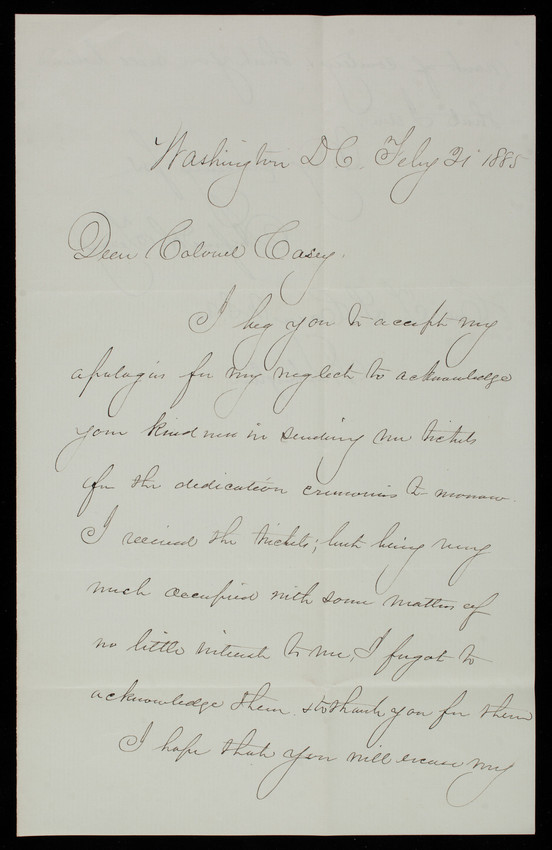 Washington D C. Feby 21 1885
Dear Colonel Casey.
I beg you to accept my
apologies for my neglect to acknowledge
your kindness in sending me tickets
for the dedication ceremonies to morrow.
I received the tickets; but being very
much occupied with some matters of
no little interest to me, I forgot to
acknowledge them & to thank you for them
I hope that you will excuse my